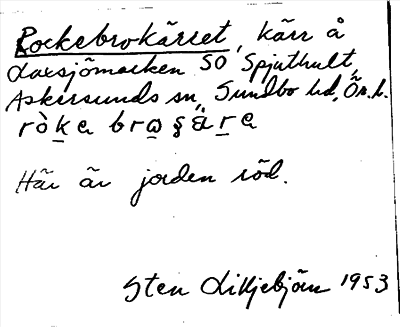 Rockebrokärret, kärr å
Laxsjömarken SO Spjuthult,
Askersunds sn, Sundbo hd, Ör. l.
rò̀ḵa brα̱ʂä̀ṟa
Här är jorden röd.
Sten Liljebjörn 1953